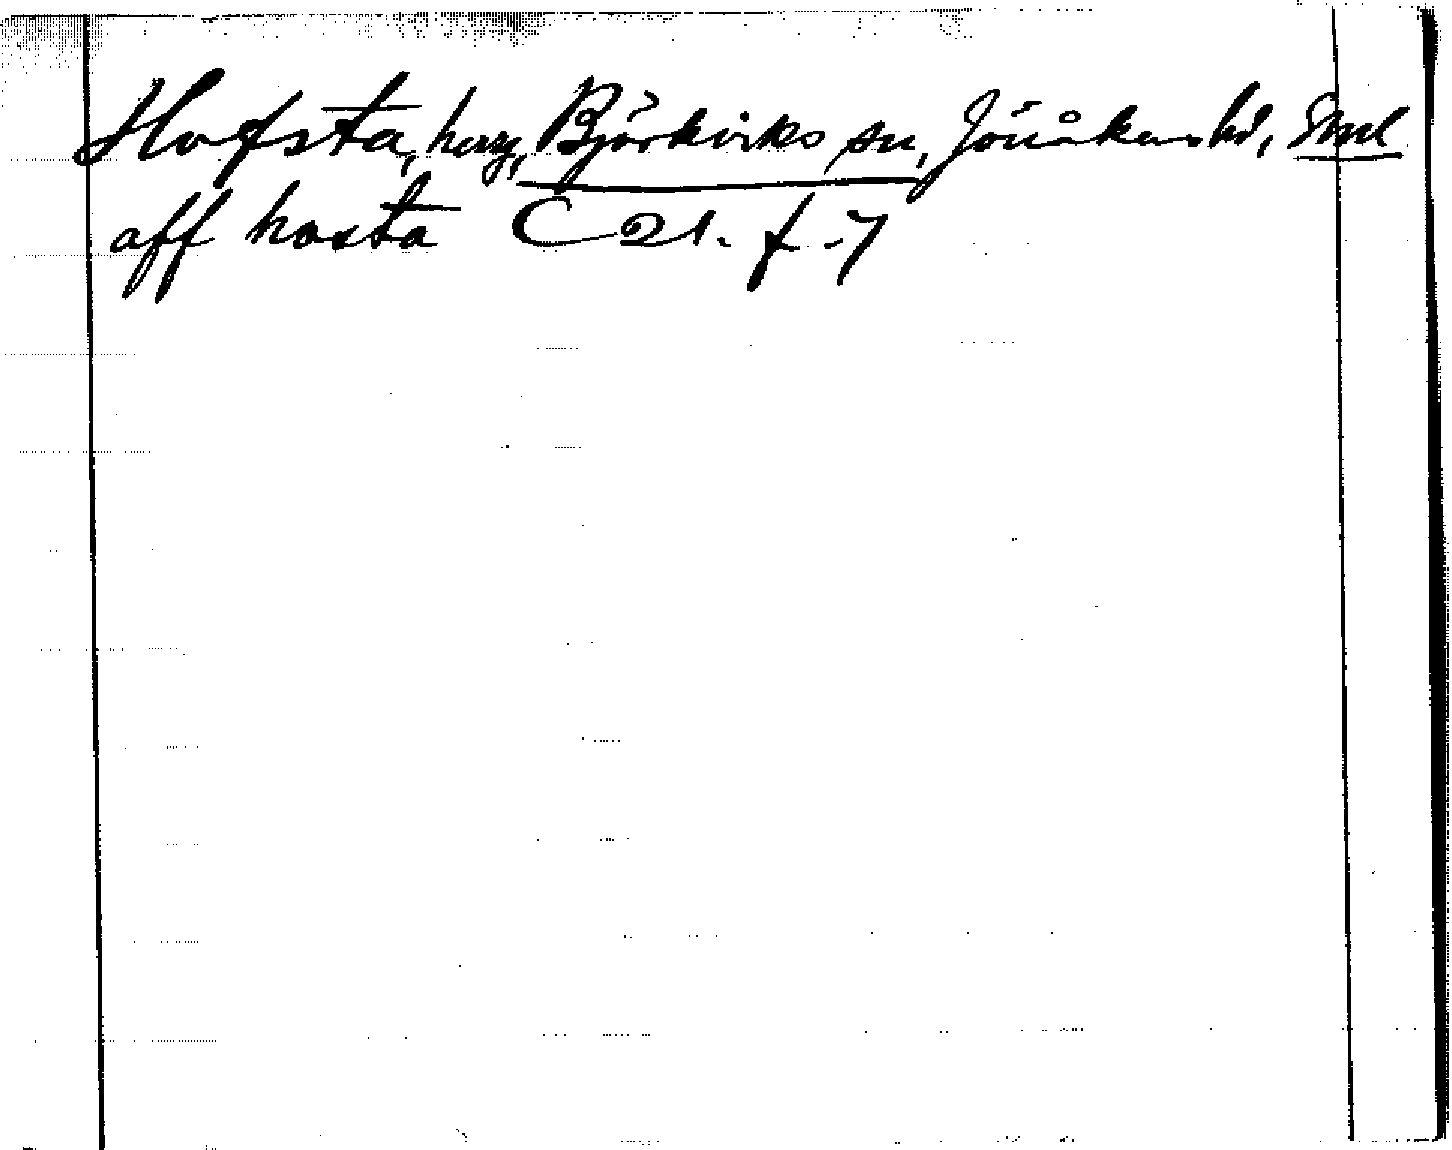 Hofsta, herrg, Björkviks sn, Jönåkers hd, Sml
aff hosta C 21. f. 7